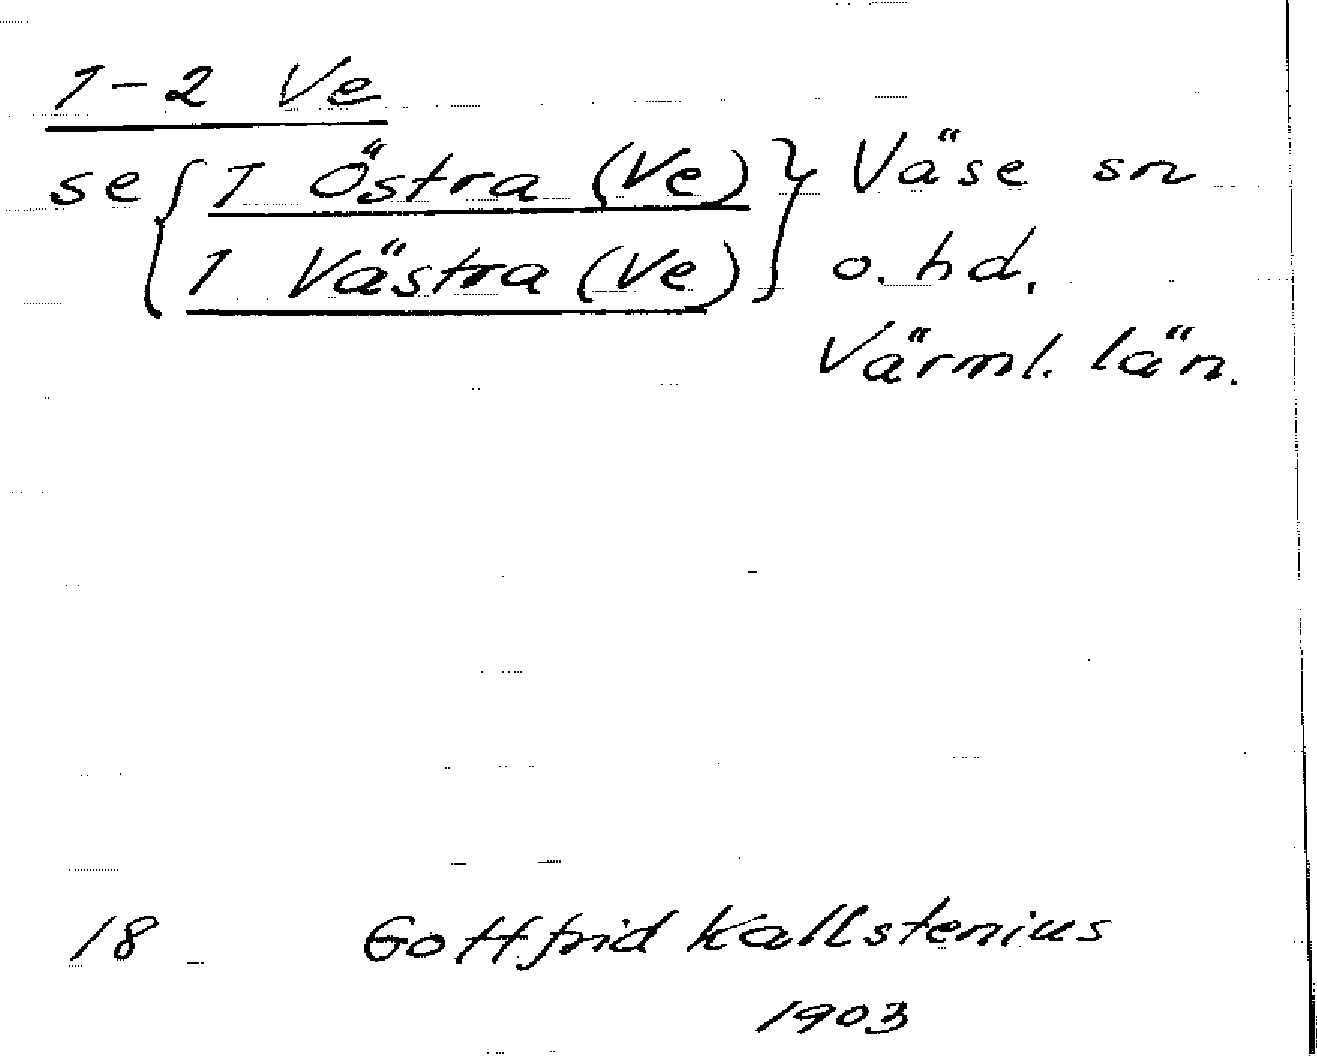 1-2 Ve
se { 1 Östra (Ve) } Väse sn
1 Västra (Ve) o. hd.
Värml. län.
18 Gottfrid Kallstenius
1903